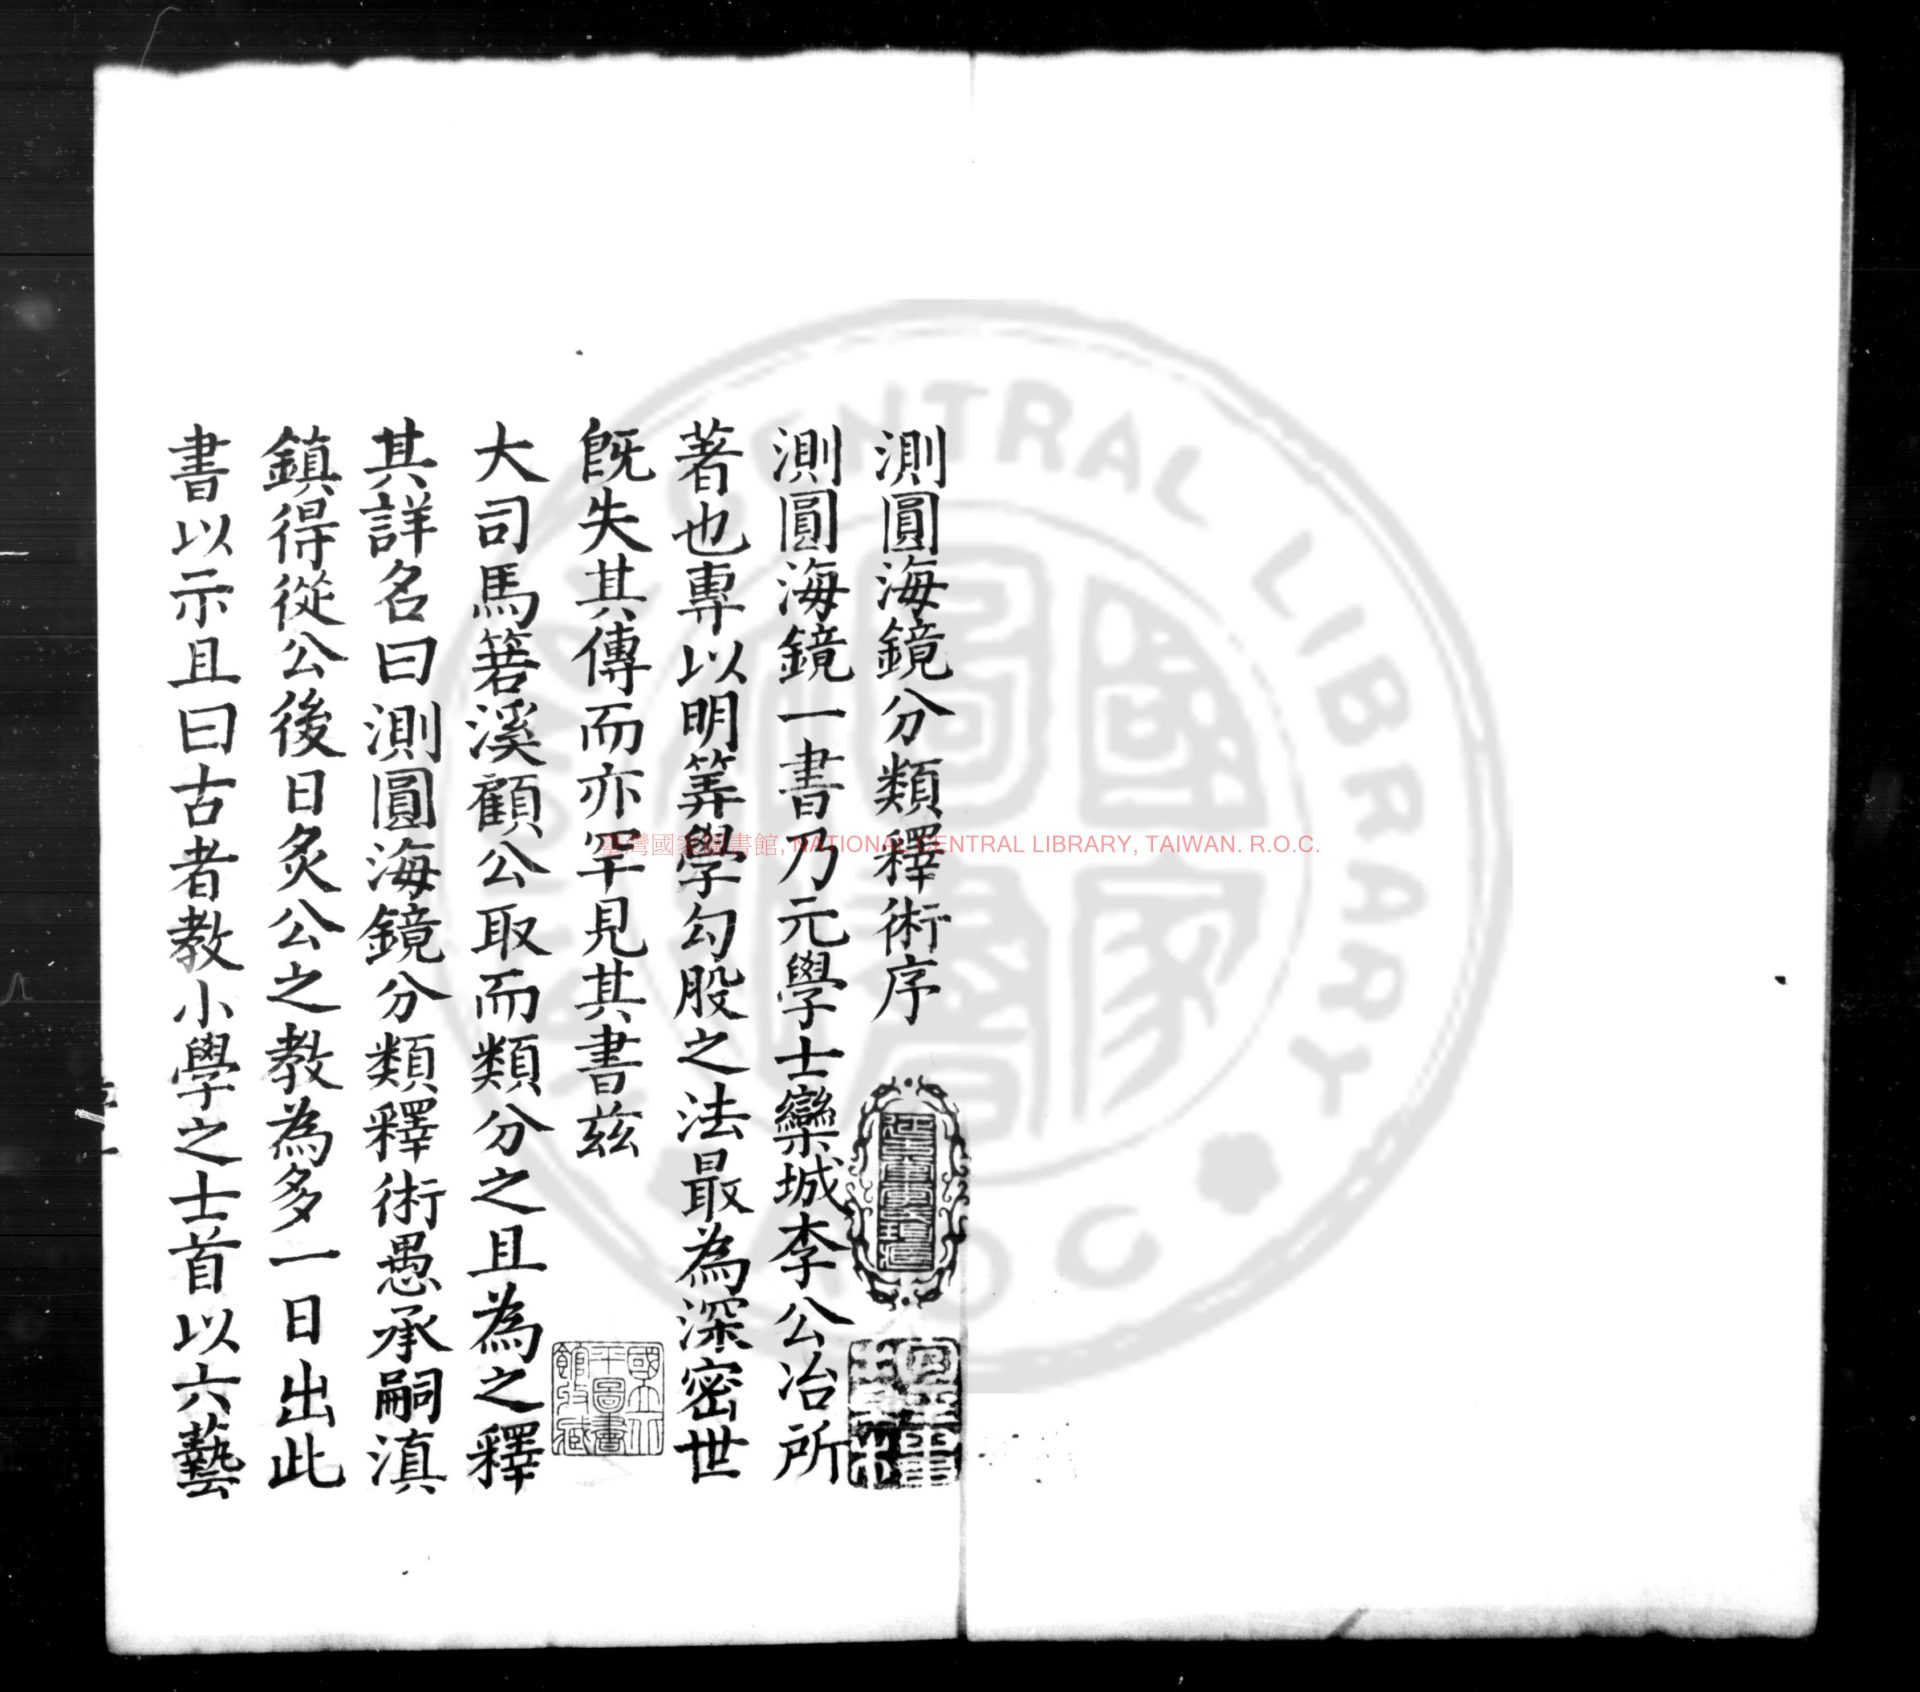 測圓海鏡分類釋術序
測圓海鏡一書乃元學士欒城李公冶所
著也專以明筭學勾股之法最為深密世
旣失其傳而亦罕見其書茲
大司馬箬溪顧公取而類分之且為之釋
其詳名曰測圓海鏡分類釋術愚承嗣滇
鎮得從公後日炙公之教為多一日出此
書以示且曰古者教小學之士首以六藝
國立北
平圖書
館收藏
臺灣國家圖書館, NATIONAL CENTRAL LIBRARY, TAIWAN. R.O.C.